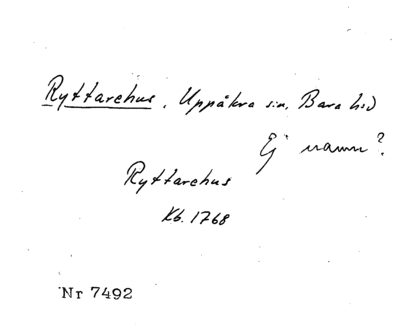 Ryttarehus, Uppåkra sn, Bara hd
Ej namn?
Ryttarehus
Kb. 1768
Nr 7492